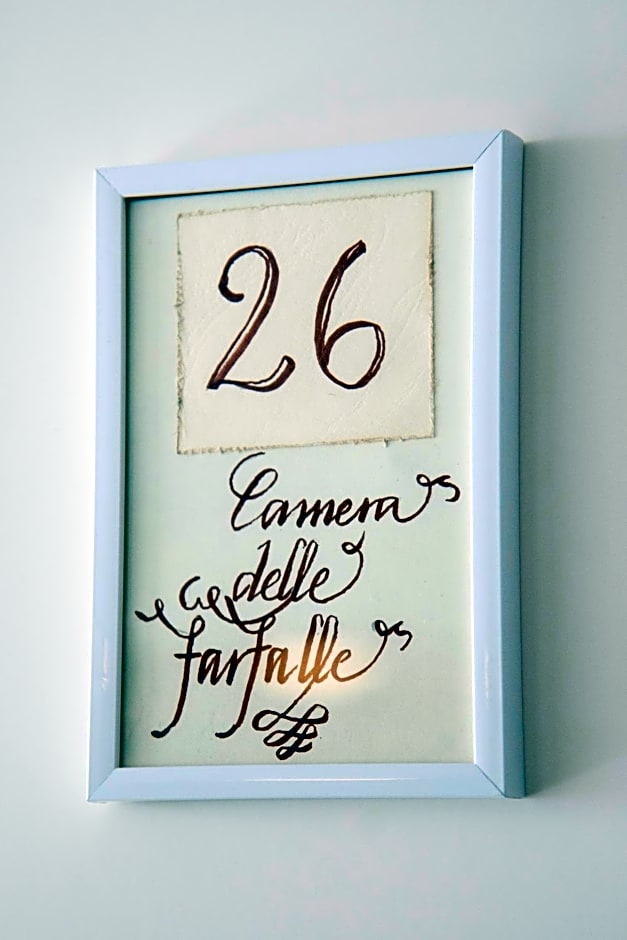 26
Camera
delle
farfalle